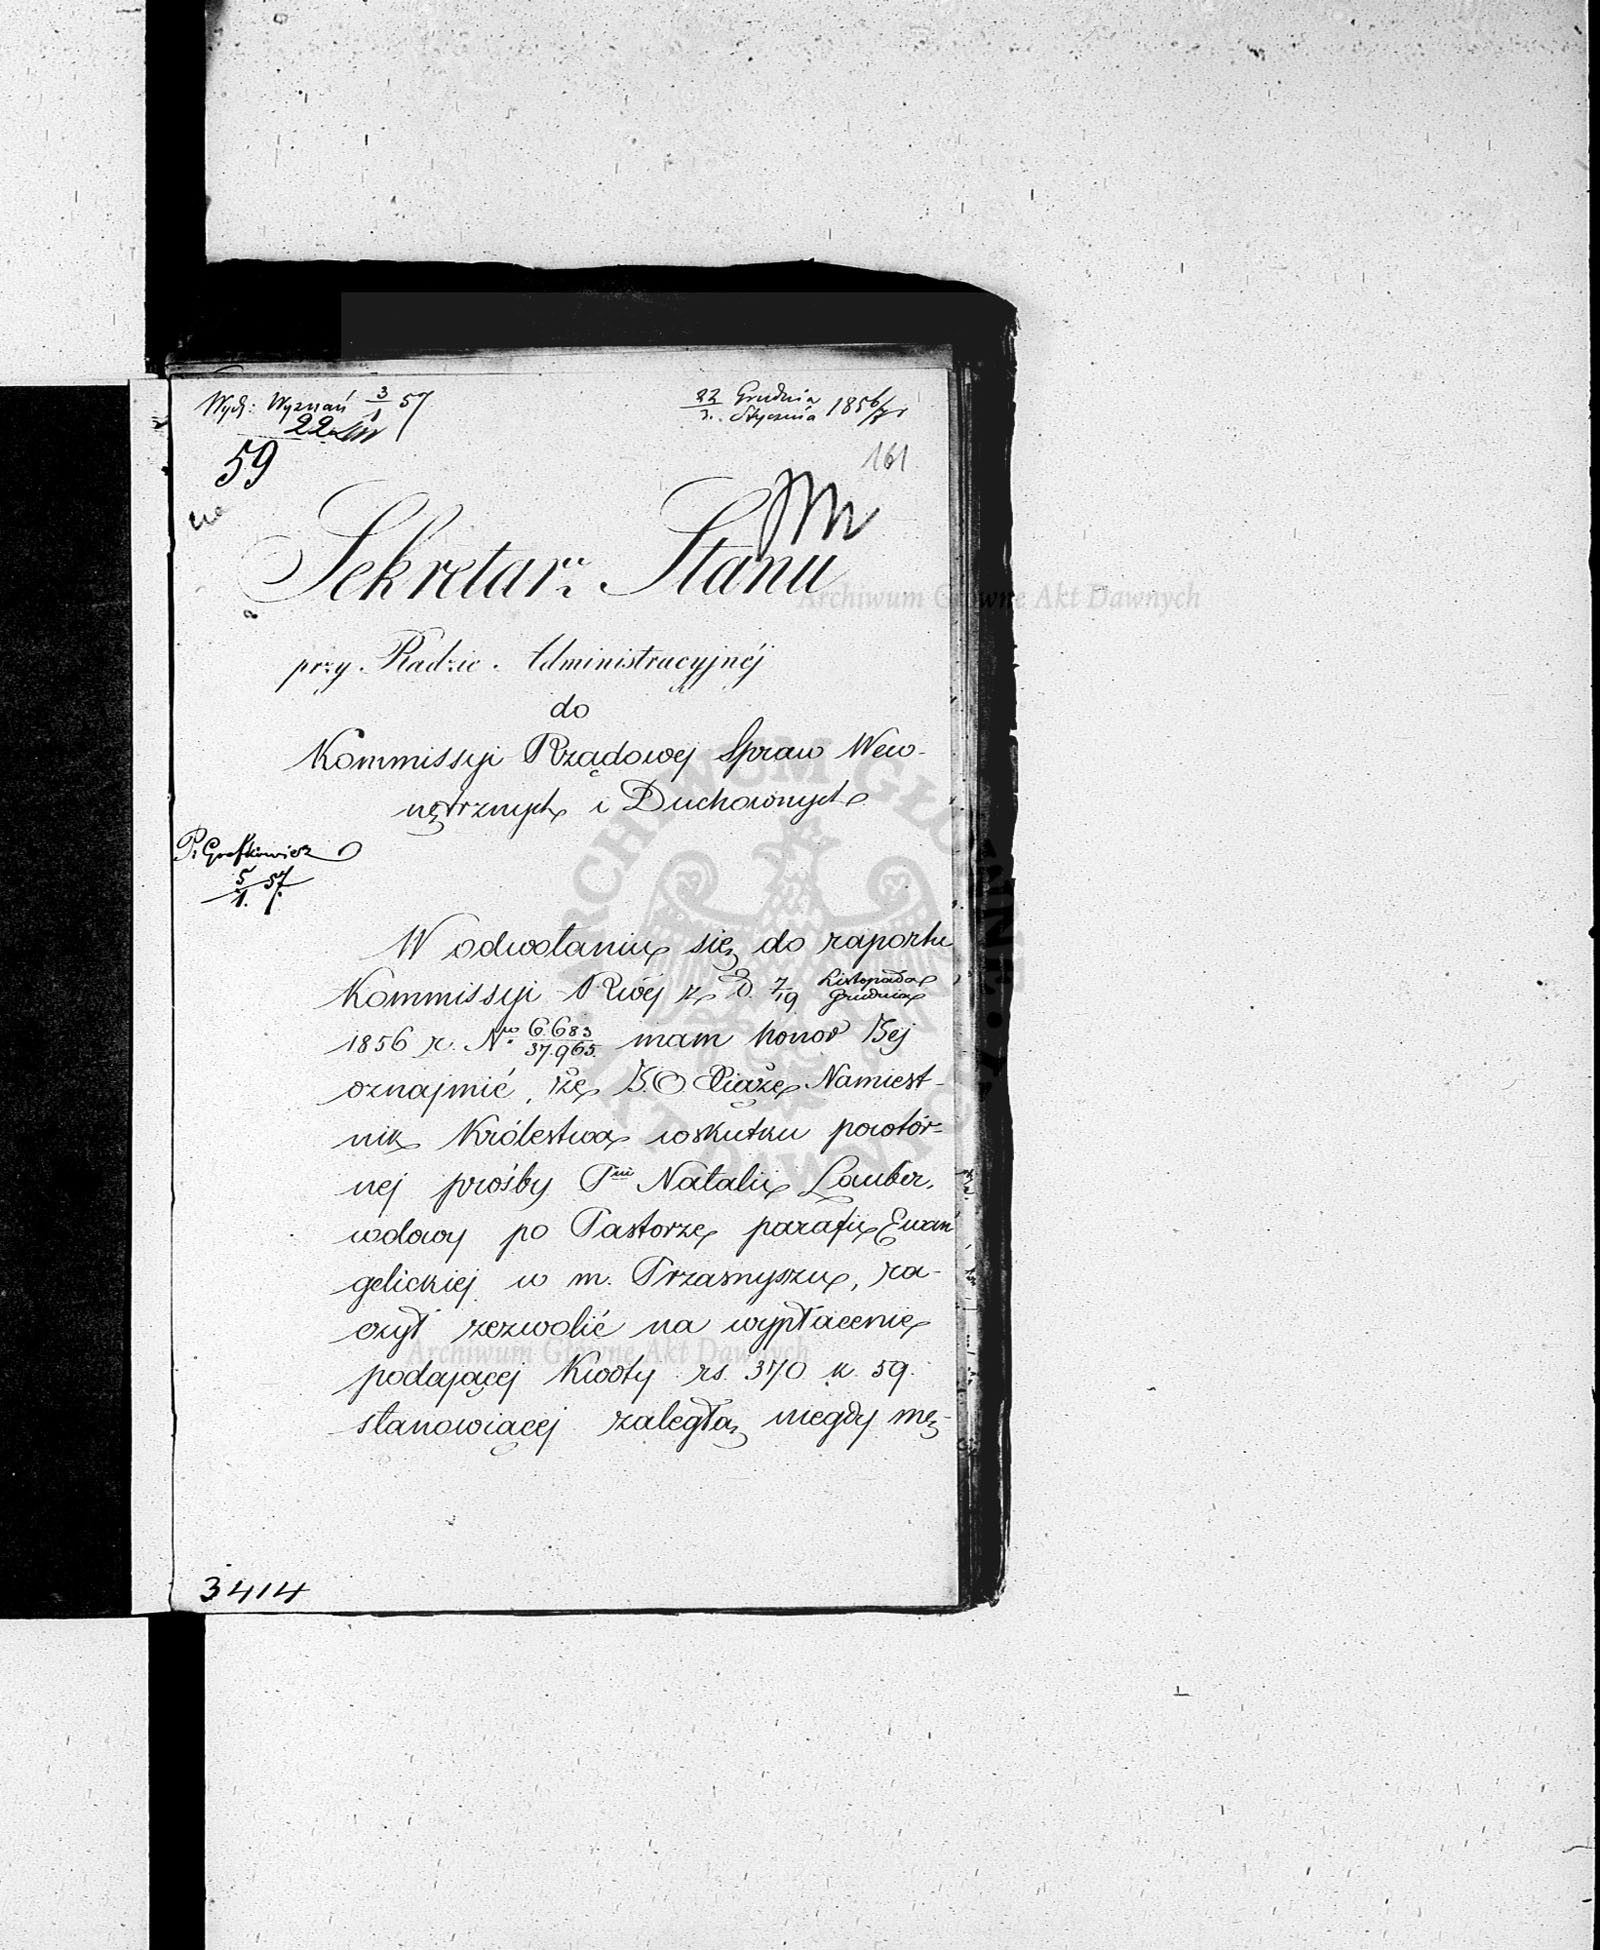 Wydz: Wyznań 3/1 57
22
59
22/3. Grudnia/Stycznia 1856/7 r
161
Sekretarz Stanu
przy Radzie Administracyjnéj
do
Kommissyi Rządowej Spraw Wew-
nętrznych i Duchownych
P. Grofkiewicz
5/1. 57.
W odwołaniu się do raportu
Kommissyi Rwéj z D. 7/19 Listopada/Grudnia
1856 r. Nro 6.683/37.965. mam honor Jéj
oznajmić, że J.O. Xiąże Namiest-
nik Królestwa wskutku powtór-
nej prośby Pni Natalii Lauber,
wdowy po Pastorze parafii Ewan
gelickiej w m. Przasnyszu, ra-
czył zezwolić na wypłacenie
podającej kwoty rs. 370 k. 59.
stanowiącej zaległą niegdy mę-
3414
Archiwum Główne Akt Dawnych
Archiwum Główne Akt Dawnych